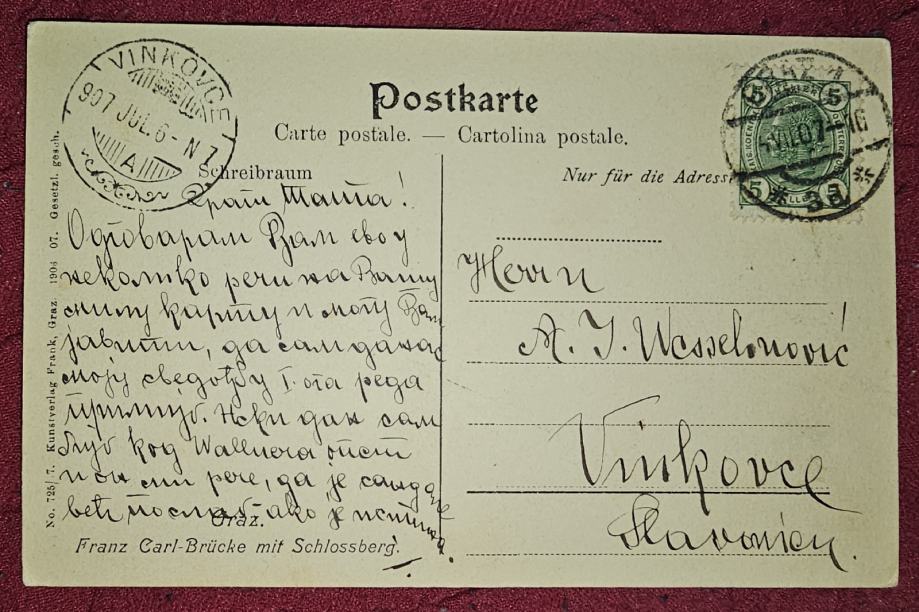 VINKOVCE
907 JUL. 6 - N 7
A
Postkarte
Carte postale. — Cartolina postale.
Schreibraum
Nur für die Adresse
5 5
5 5
Драги Тата!
Одговарам Вам ево у
неколико речи на Вашу
милу карту и могу Вам
јавити, да сам данас
моју сведоџбу I. ога реда
примио. Неки дан сам
био код Wallnera опет
и он ми рече, да је сандаре
већ послао ако је истина.
Graz.
Franz Carl-Brücke mit Schlossberg.
No. 725/7. Kunstverlag Frank, Graz 1906 07. Gesetzl. gesch.
Herrn
A. J. Wesselinović
Vinkovce
Slavonien.